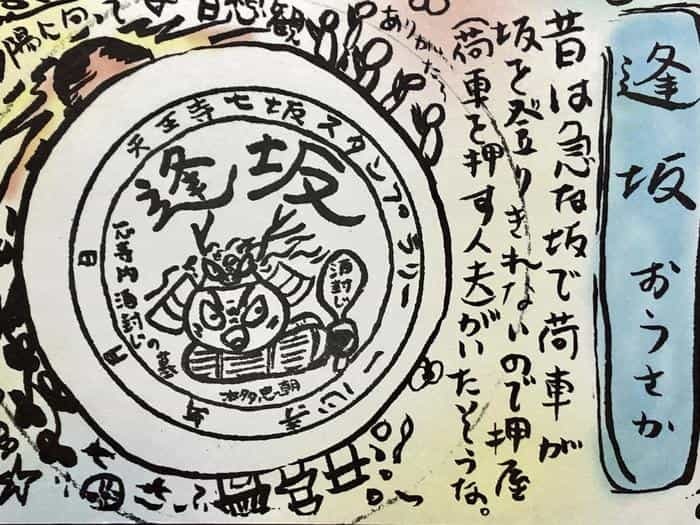 逢坂 おうさか
昔は急な坂で荷車が
坂を登りきれないので押屋
(荷車を押す人夫)がいたそうな。
ありがたや
日想観
天王寺七坂スタンプラリー
逢坂
酒封じ
心寺内酒封じの墓
本多忠朝
一心寺
年
月
日